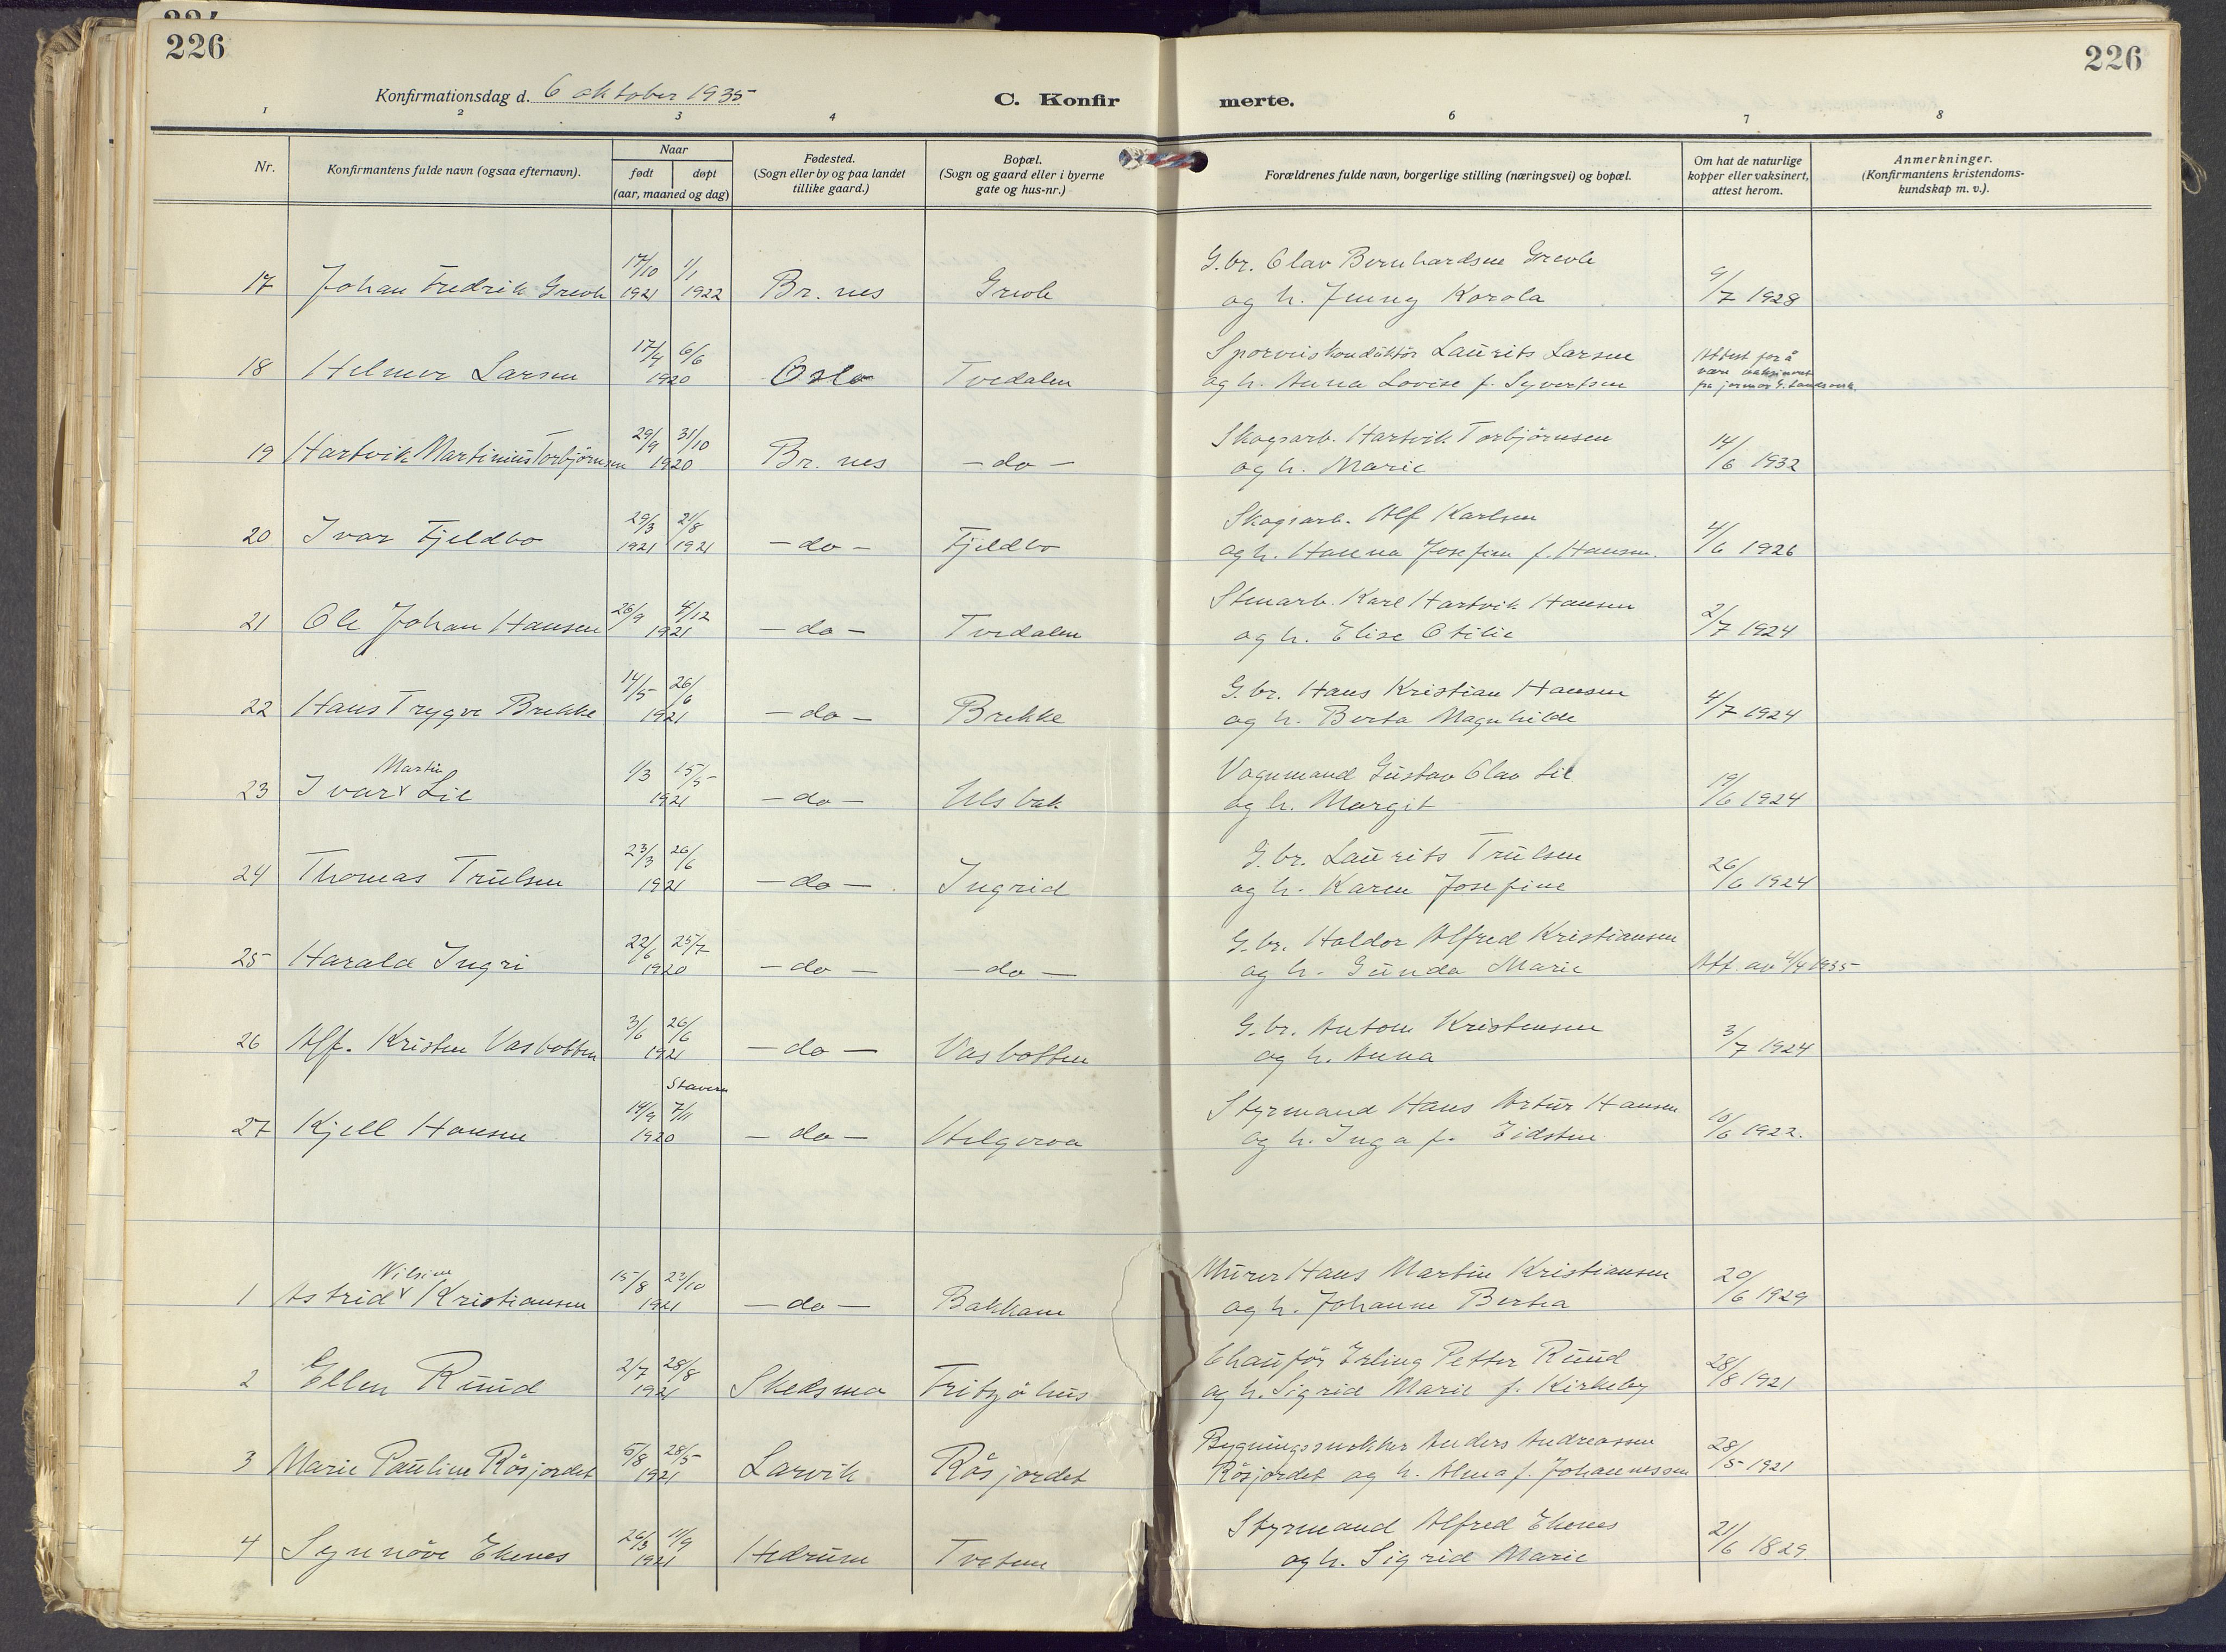 226
226
Konfirmationsdag d. 6 oktober 1935
C. Konfir merte.
1 2 3 4 6 7 8
Nr.
Konfirmantens fulde navn (ogsaa efternavn).
Naar
født døpt
(aar, maaned og dag)
Fødested.
(Sogn eller by og paa landet
tillike gaard.)
Bopæl.
(Sogn og gaard eller i byerne
gate og hus-nr.)
Forældrenes fulde navn, borgerlige stilling (næringsvei) og bopæl.
Om hat de naturlige
kopper eller vaksinert,
attest herom.
Anmerkninger.
(Konfirmantens kristendoms-
kundskap m. v.).
17/10 1/1 G.br. Olav Bernhardsen Grevle
17 Johan Fredrik Grevle 1921 1922 Br.nes Grevle og h. Jenny Karola 9/7 1928
17/4 6/6 Sporveiskonduktör Laurits Larsen Attest for å
18 Helmer Larsen 1920 Oslo Tvedalen og h. Anna Lovise f. Syvertsen være vaksinert
29/9 31/10 Skogsarb. Hartvik Torbjörnsen
19 Hartvik Martinius Torbjörnsen 1920 Br.nes - do - og h. Marie 14/6 1932
29/3 21/8 Skogsarb. Alf Karlsen
20 Ivar Fjeldbo 1921 1921 - do - Fjeldbo og h. Hanna Josefine f. Hansen. 4/6 1926
26/9 4/12 Stenarb. Karl Hartvik Hansen
21 Ole Johan Hansen 1921 - do - Tvedalen og h. Elise Otilie 2/7 1924
14/5 26/6 G.br. Hans Kristian Hansen
22 Hans Trygve Brekke 1921 - do - Brekke og h. Berta Magnhilde 4/7 1924
Martin 1/3 15/5 Vognmand Gustav Olav Lie
23 Ivar v Lie 1921 - do - Ulsbak og h. Margit 19/6 1924
23/3 26/6 G.br. Laurits Trulsen
24 Thomas Trulsen 1921 - do - Ingrid og h. Karen Josefine 26/6 1924
22/6 25/7 G.br. Haldor Alfred Kristiansen
25 Harald Ingri 1920 - do - - do - og h. Gunda Marie Att. av 4/4 1935
3/6 26/6 G.br. Anton Kristensen
26 Alf. Kristen Vasbotten 1921 - do - Vasbotten og h. Anna 3/7 1924
Stavern
14/9 7/11 Styrmand Hans Artur Hansen
27 Kjell Hansen 1920 - do - Helgeroa og h. Inga f. Eidsten 10/6 1922.
Nilsine 15/8 23/10 Murer Hans Martin Kristiansen
1 Astrid v Kristiansen 1921 - do - Bakkane og h. Johanne Bertea 20/6 1929
2/7 28/8 Chauför Erling Petter Ruud
2 Ellen Ruud 1921 Skedsmo Fritzöhus og h. Sigrid Marie f. Kirkeby 28/8 1921
5/8 28/5 Bygningssnekker Anders Andreassen
3 Marie Pauline Rösjordet 1921 Larvik Råsjordet Rösjordet og h. Alma f. Johannessen 28/5 1921
26/3 11/9 Styrmand Alfred Ekenes
4 Synnöve Ekenes 1921 Hedrum Tveten og h. Sigrid Marie 21/6 1829.